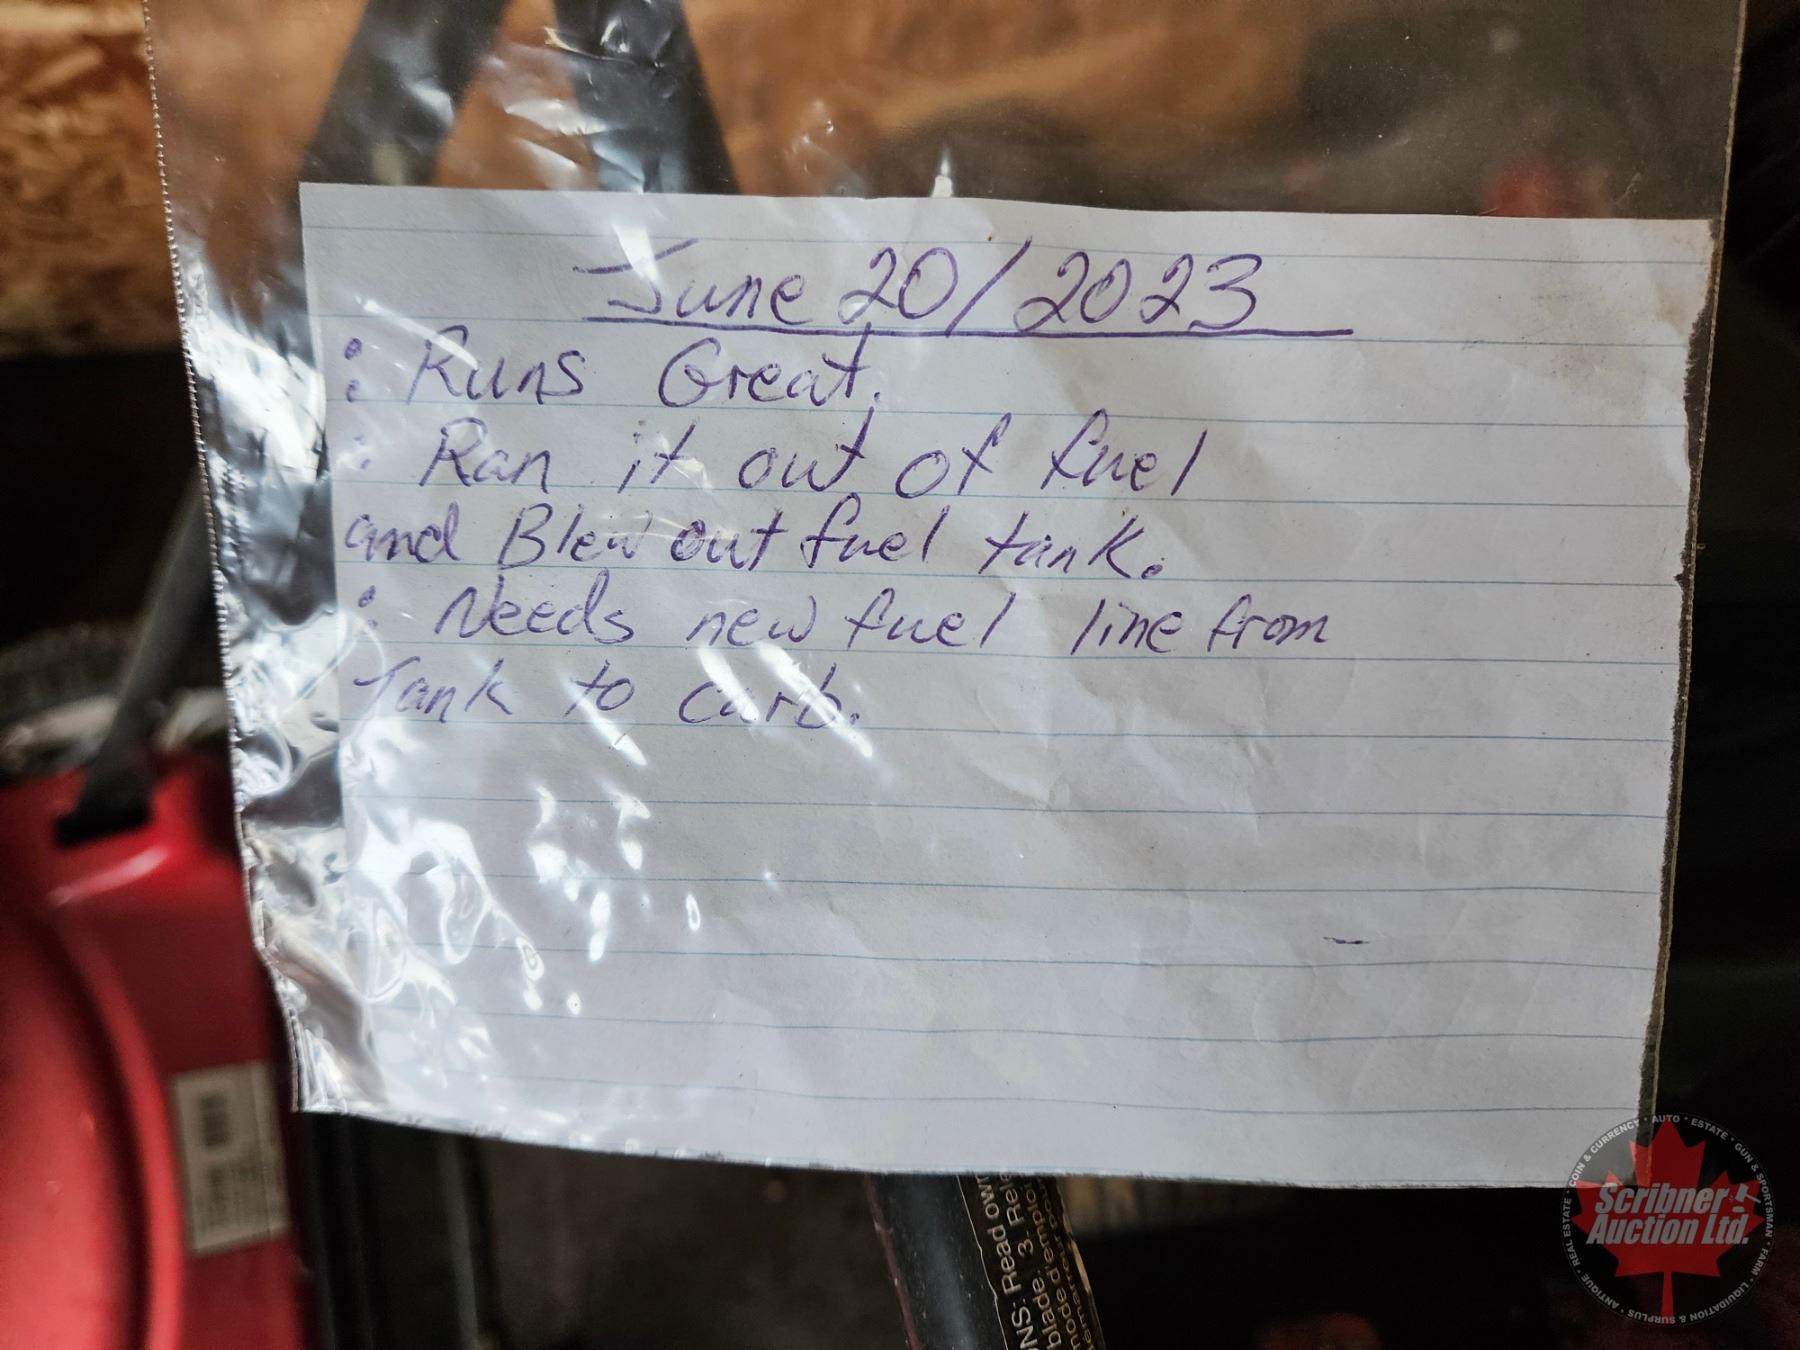 June 20/2023
: Runs Great.
: Ran it out of fuel
and Blew out fuel tank.
: Needs new fuel line from
Tank to carb.
NS: Read
blade. 3. Rel
mode d'emploi
Scribner
Auction Ltd.
COIN & CURRENCY • AUTO • ESTATE • GUN & SPORTSMAN • FARM • LIQUIDATION & SURPLUS • ANTIQUE • REAL ESTATE •